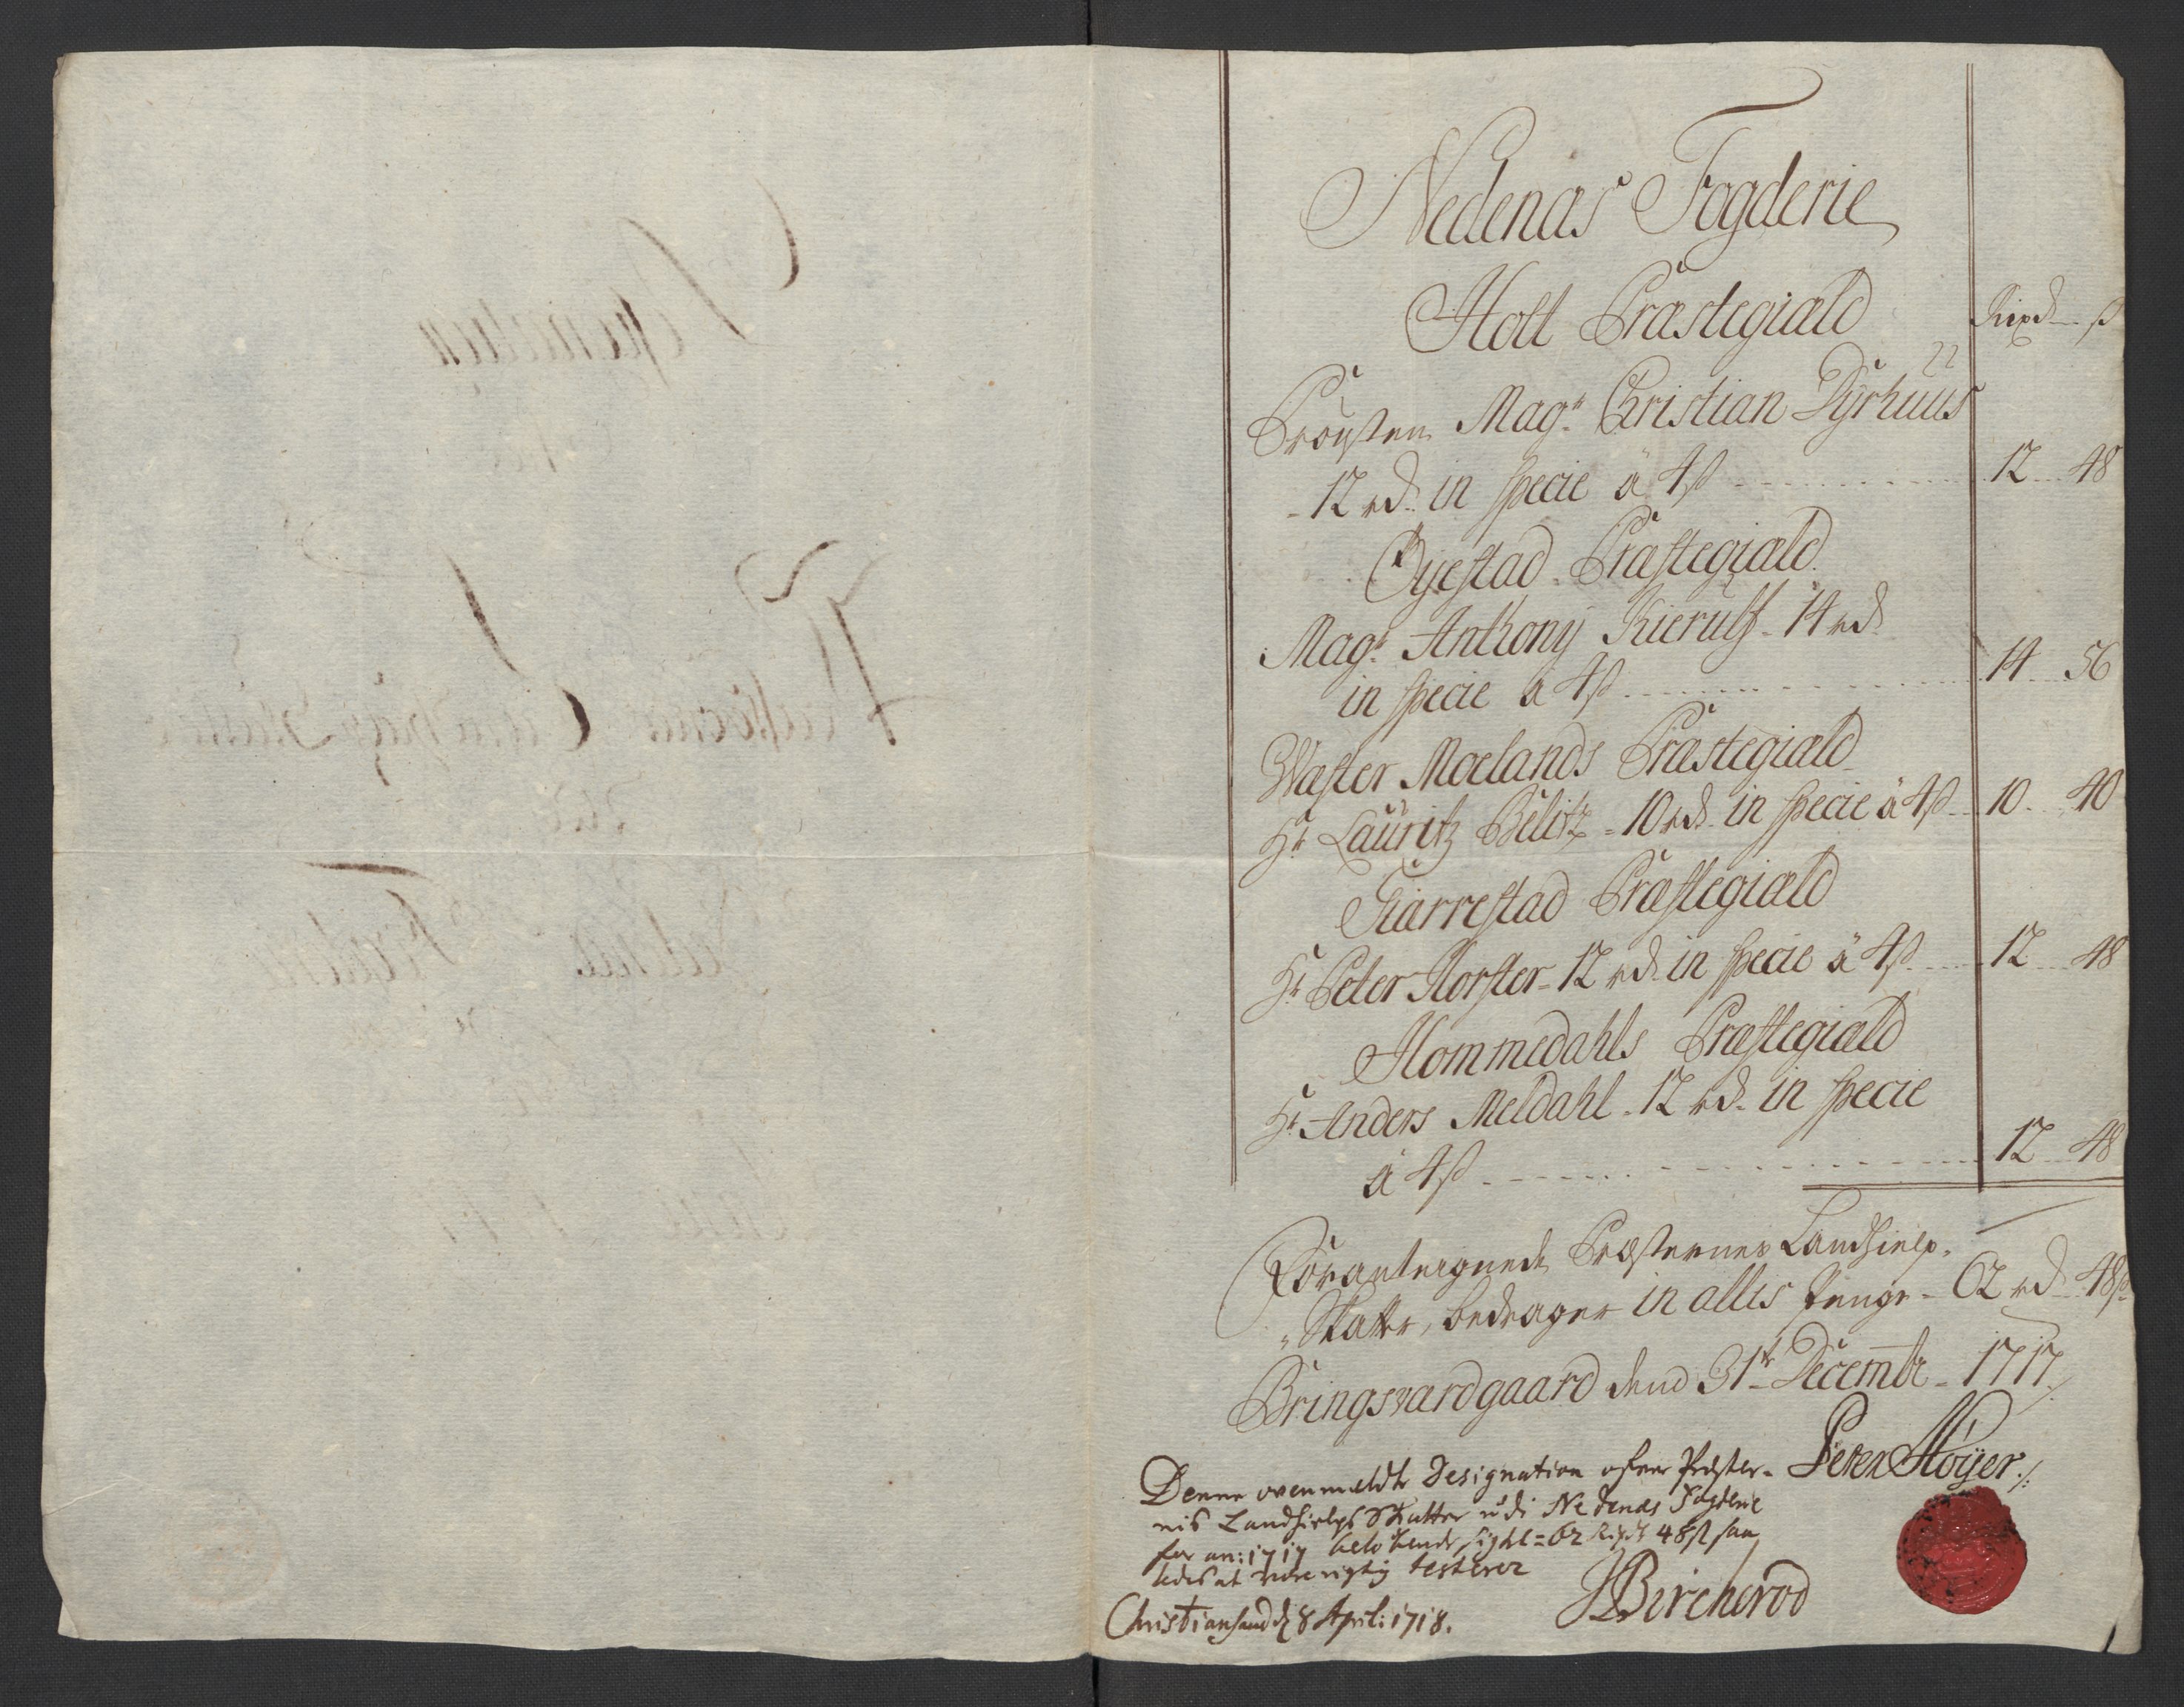 Nedenæs Fogderie
Holt Præstegiæld
Rixd ß
Prousten Magr Christian Dyrhuus
12 rd. in specie à 4 ß 12 48
Öyestad Præstegiæld
Magr Anthony Kierulf 14 rd
in specie à 4 ß 14 56
Wæster Moelands Præstegiæld
Hr Lauritz Bélitz 10 rd in specie à 4 ß 10 40
Giærrestad Præstegiæld
Hr Peter Horster 12 rd in specie à 4 ß 12 48
Hommedahls Præstegiæld
Hr Anders Meldahl 12 rd in specie
à 4 ß 12 48
Præsternes Landhielp
Skatter, bedrager in alles penge 62 rd 48 ß
Bringsværdgaard dend 31te Decembr 1717
Peter Höyer
Denne ovenmeldte Designation ofver Præster-
nis Landhielps Skatter udi Nedenæs Fogderie
for an: 1717 belöbende sig til = 62 Rixdr 48 ß saa
ledes at være rigtig testerer
JBircherod
Christiansand d 8 April: 1718.